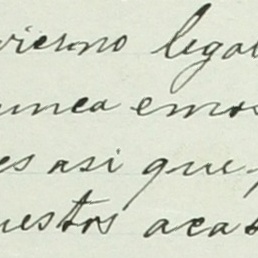 vierno legal
unca emos
es asi que
uestos acas